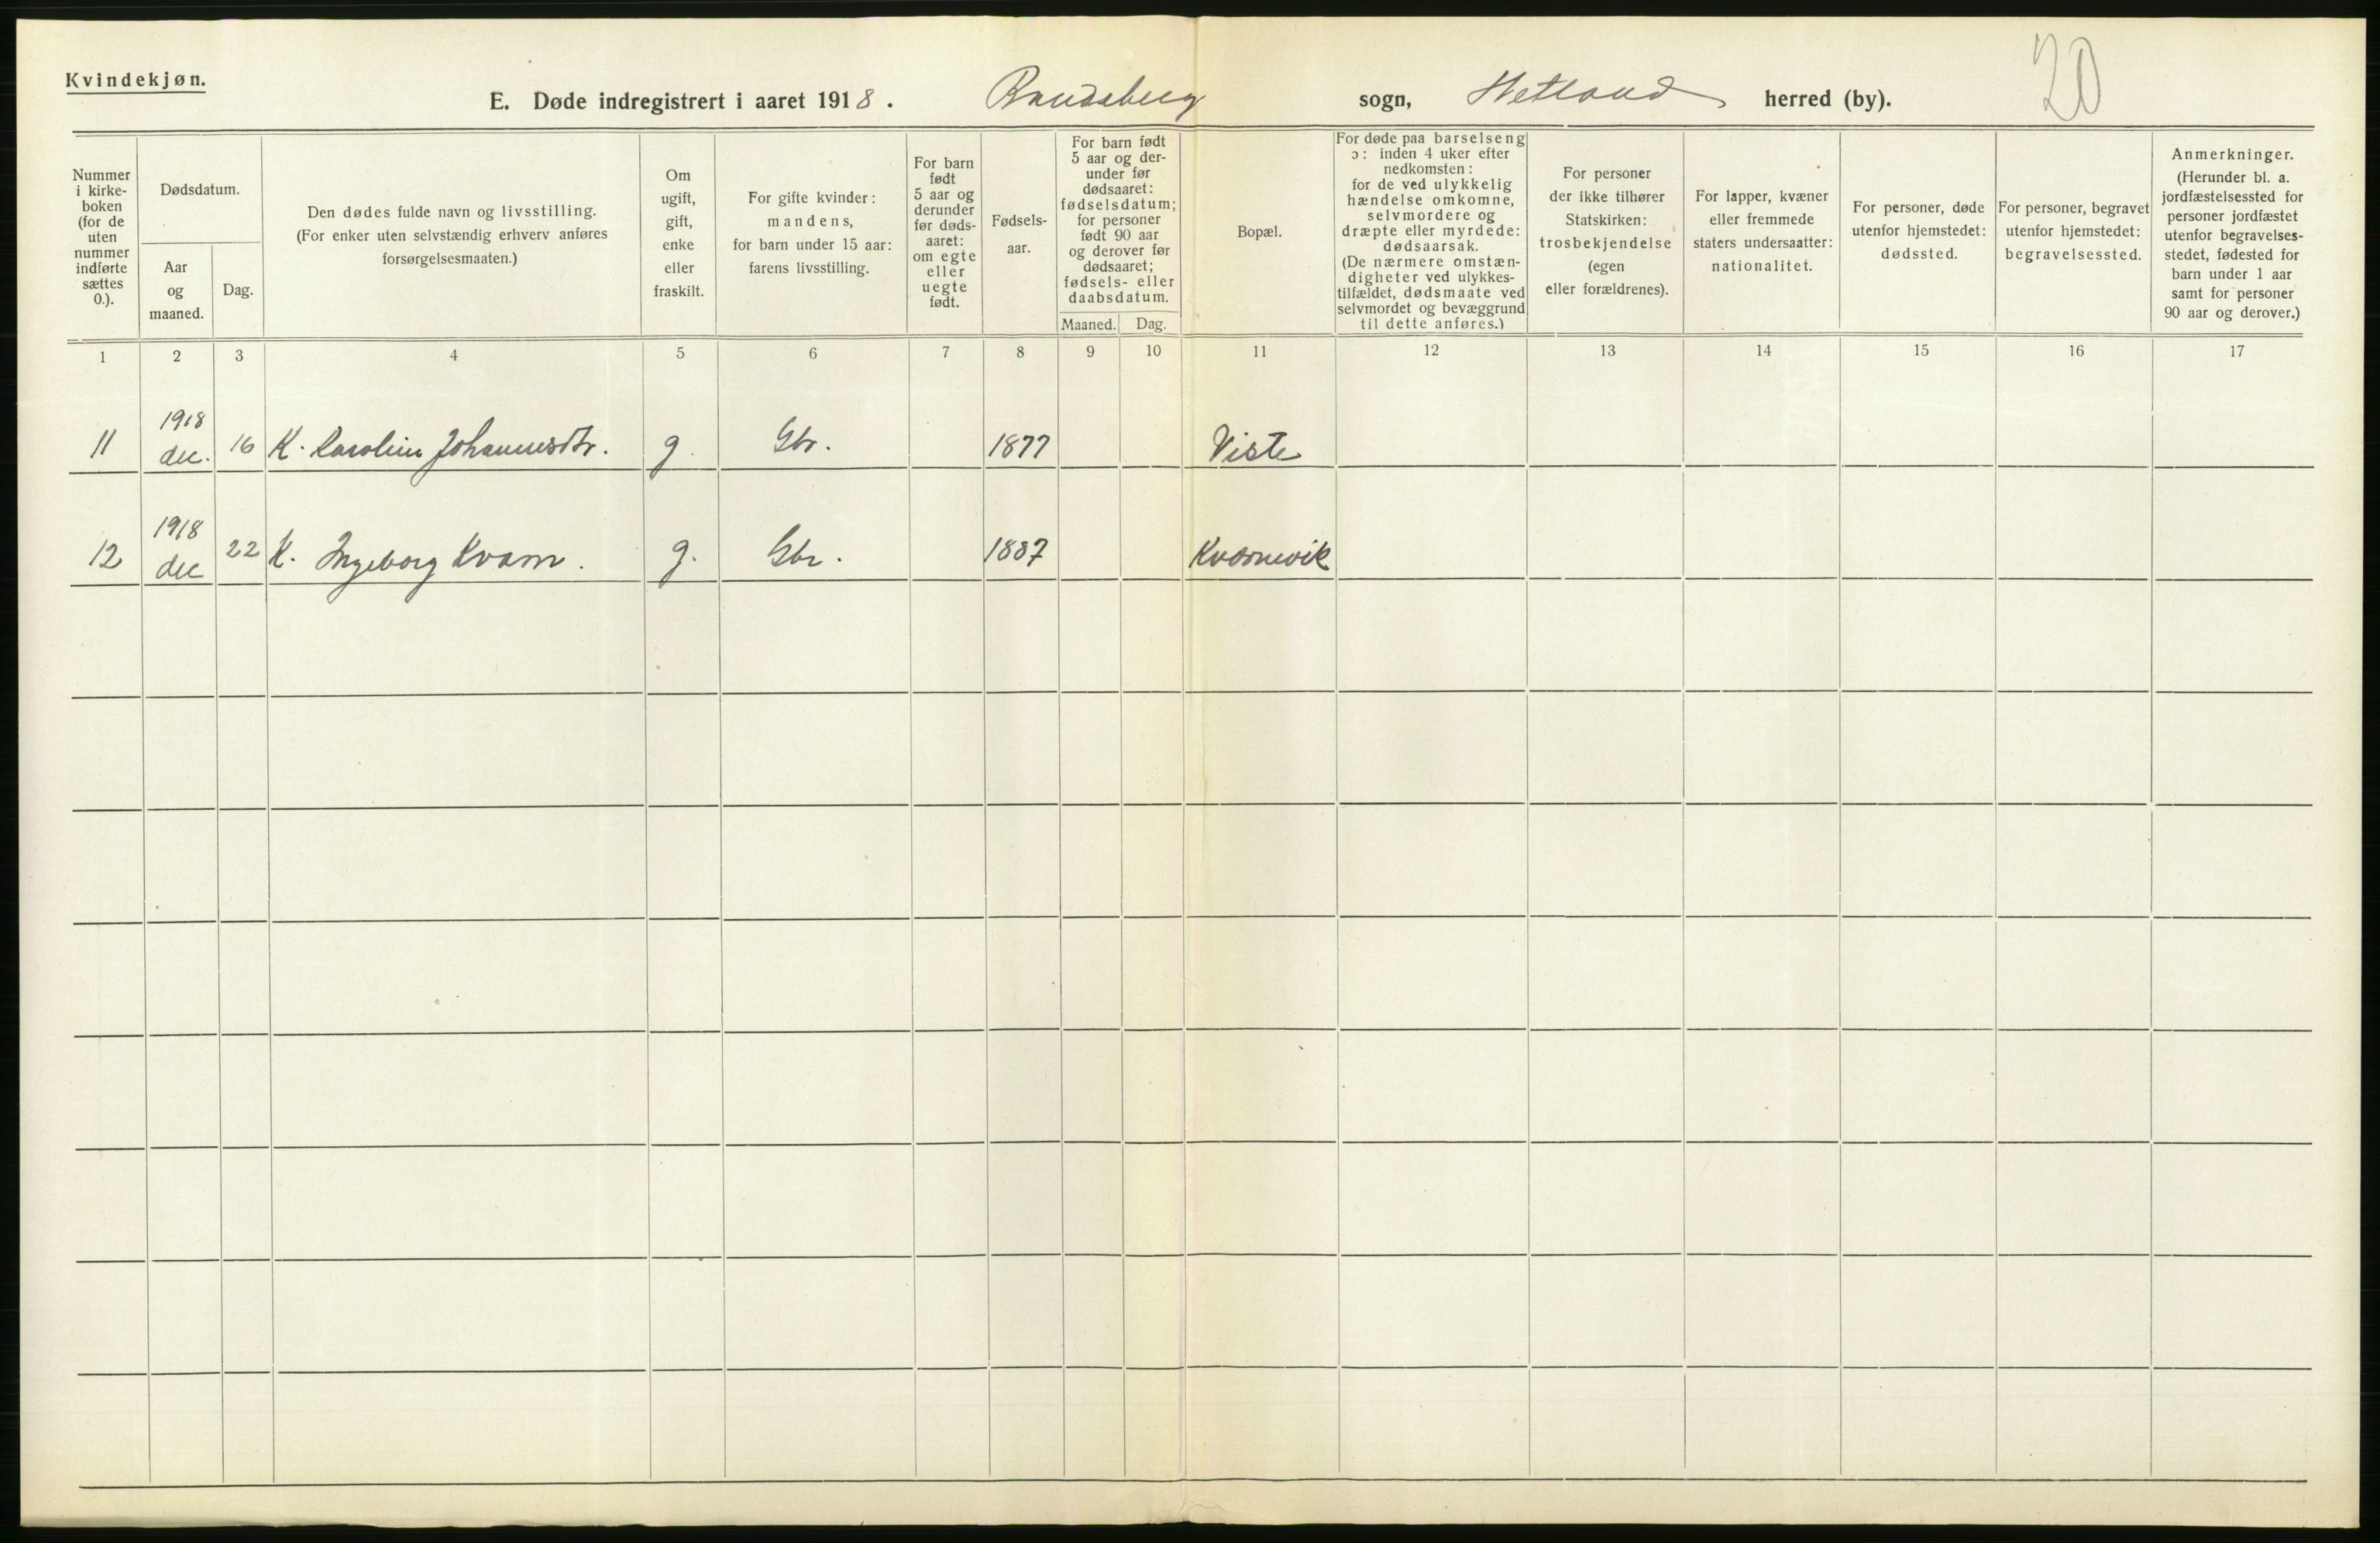 Kvindekjøn.
E. Døde indregistrert i aaret 1918. Randaberg sogn, Hetland herred (by).
20
Nummer
i kirke-
boken
(for de
uten
nummer
indførte
sættes
0.).
Dødsdatum.
Aar
og
maaned.
Dag.
Den dødes fulde navn og livsstilling.
(For enker uten selvstændig erhverv anføres
forsørgelsesmaaten.)
Om
ugift,
gift,
enke
eller
fraskilt.
For gifte kvinder:
mandens,
for barn under 15 aar:
farens livsstilling.
For barn
født
5 aar og
derunder
før døds-
aaret:
om egte
eller
uegte
født.
Fødsels-
aar.
For barn født
5 aar og der-
under før
dødsaaret:
fødselsdatum;
for personer
født 90 aar
og derover før
dødsaaret;
fødsels- eller
daabsdatum.
Maaned.
Dag.
Bopæl.
For døde paa barselseng
ɔ: inden 4 uker efter
nedkomsten:
for de ved ulykkelig
hændelse omkomne,
selvmordere og
dræpte eller myrdede:
dødsaarsak.
(De nærmere omstæn-
digheter ved ulykkes-
tilfældet, dødsmaate ved
selvmordet og bevæggrund
til dette anføres.)
For personer
der ikke tilhører
Statskirken:
trosbekjendelse
(egen
eller forældrenes).
For lapper, kvæner
eller fremmede
staters undersaatter:
nationalitet.
For personer, døde
utenfor hjemstedet:
dødssted.
For personer, begravet
utenfor hjemstedet:
begravelsessted.
Anmerkninger.
(Herunder bl. a.
jordfæstelsessted for
personer jordfæstet
utenfor begravelses-
stedet, fødested for
barn under 1 aar
samt for personer
90 aar og derover.)
1 2 3 4 5 6 7 8 9 10 11 12 13 14 15 16 17
1918
11 dec. 16 K. Karolin Johannesdtr. g. Gbr. 1877 Viste
1918
12 dec 22 K. Ingeborg Kvam. g. Gbr. 1887 Kværnevik